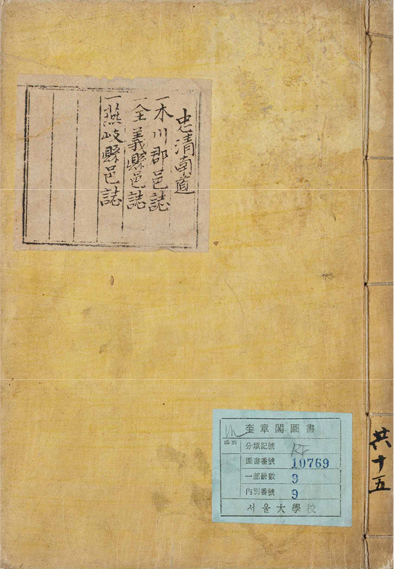 忠清南道
一木川郡邑誌
一全義縣邑誌
一燕岐縣邑誌
共十五
奎章閣圖書
分類記號
圖書番號 10769
一部冊數
內別番號 9
서울大學校